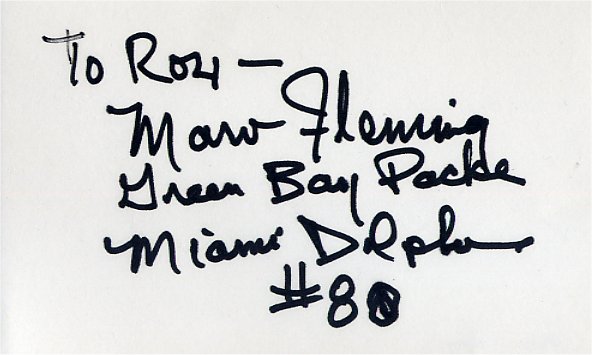 To Roy —
Marv Fleming
Green Bay Packe
Miami Dolphin
#80